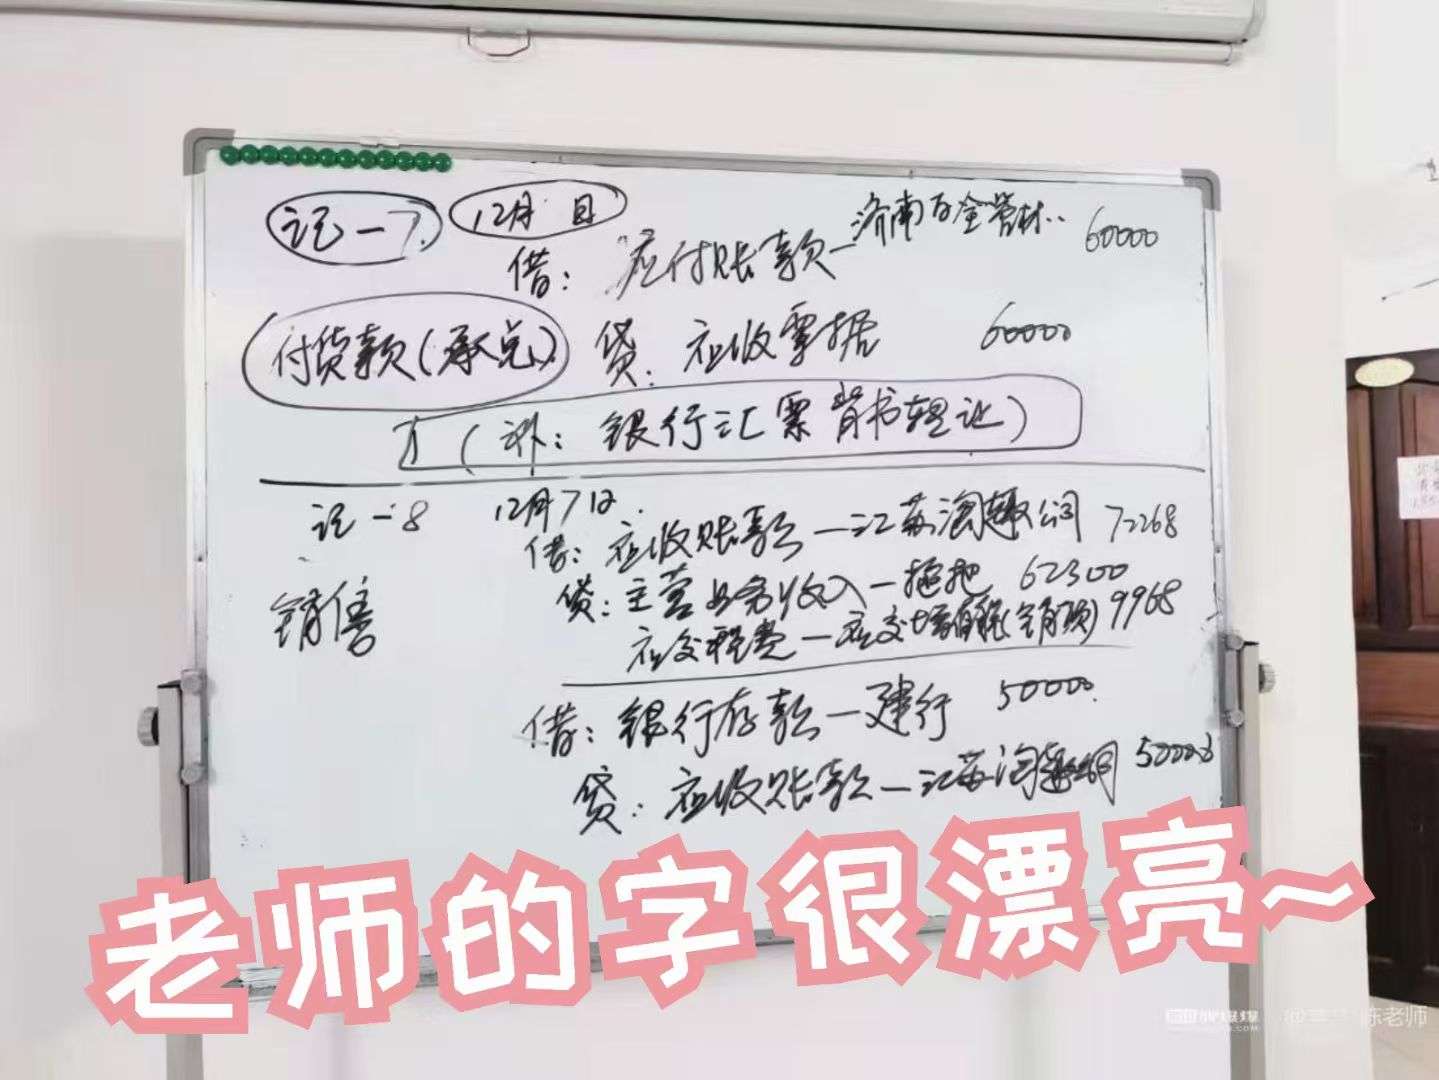 记一7 12月 日
借：应付账款一济南百金管材.. 60000
付货款(承兑) 贷：应收票据 60000
(补：银行汇票背书转让)
记一8 12月7日
借：应收账款一江苏淘趣公司 72268
销售 贷：主营业务收入一拖把 62300
应交税费一应交增值税(销项) 9968
借：银行存款一建行 50000
贷：应收账款一江苏淘趣 50000
老师的字很漂亮~
陈老师